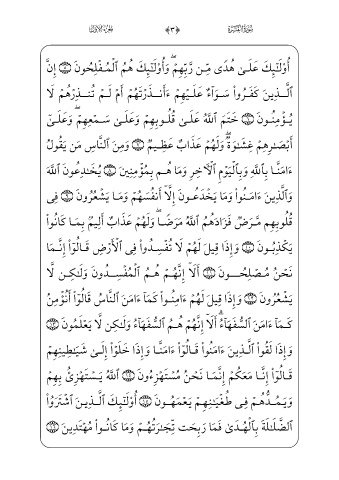 سورة البقرة ﴿٣﴾ الجزء الأول
أُو۟لَـٰٓئِكَ عَلَىٰ هُدًى مِّن رَّبِّهِمْ ۖ وَأُو۟لَـٰٓئِكَ هُمُ ٱلْمُفْلِحُونَ ۝٥ إِنَّ
ٱلَّذِينَ كَفَرُوا۟ سَوَآءٌ عَلَيْهِمْ ءَأَنذَرْتَهُمْ أَمْ لَمْ تُنذِرْهُمْ لَا
يُؤْمِنُونَ ۝٦ خَتَمَ ٱللَّهُ عَلَىٰ قُلُوبِهِمْ وَعَلَىٰ سَمْعِهِمْ ۖ وَعَلَىٰٓ
أَبْصَـٰرِهِمْ غِشَـٰوَةٌ ۖ وَلَهُمْ عَذَابٌ عَظِيمٌ ۝٧ وَمِنَ ٱلنَّاسِ مَن يَقُولُ
ءَامَنَّا بِٱللَّهِ وَبِٱلْيَوْمِ ٱلْـَٔاخِرِ وَمَا هُم بِمُؤْمِنِينَ ۝٨ يُخَـٰدِعُونَ ٱللَّهَ
وَٱلَّذِينَ ءَامَنُوا۟ وَمَا يَخْدَعُونَ إِلَّآ أَنفُسَهُمْ وَمَا يَشْعُرُونَ ۝٩ فِى
قُلُوبِهِم مَّرَضٌ فَزَادَهُمُ ٱللَّهُ مَرَضًا ۖ وَلَهُمْ عَذَابٌ أَلِيمٌۢ بِمَا كَانُوا۟
يَكْذِبُونَ ۝١٠ وَإِذَا قِيلَ لَهُمْ لَا تُفْسِدُوا۟ فِى ٱلْأَرْضِ قَالُوٓا۟ إِنَّمَا
نَحْنُ مُصْلِحُونَ ۝١١ أَلَآ إِنَّهُمْ هُمُ ٱلْمُفْسِدُونَ وَلَـٰكِن لَّا
يَشْعُرُونَ ۝١٢ وَإِذَا قِيلَ لَهُمْ ءَامِنُوا۟ كَمَآ ءَامَنَ ٱلنَّاسُ قَالُوٓا۟ أَنُؤْمِنُ
كَمَآ ءَامَنَ ٱلسُّفَهَآءُ ۗ أَلَآ إِنَّهُمْ هُمُ ٱلسُّفَهَآءُ وَلَـٰكِن لَّا يَعْلَمُونَ ۝١٣
وَإِذَا لَقُوا۟ ٱلَّذِينَ ءَامَنُوا۟ قَالُوٓا۟ ءَامَنَّا وَإِذَا خَلَوْا۟ إِلَىٰ شَيَـٰطِينِهِمْ
قَالُوٓا۟ إِنَّا مَعَكُمْ إِنَّمَا نَحْنُ مُسْتَهْزِءُونَ ۝١٤ ٱللَّهُ يَسْتَهْزِئُ بِهِمْ
وَيَمُدُّهُمْ فِى طُغْيَـٰنِهِمْ يَعْمَهُونَ ۝١٥ أُو۟لَـٰٓئِكَ ٱلَّذِينَ ٱشْتَرَوُا۟
ٱلضَّلَـٰلَةَ بِٱلْهُدَىٰ فَمَا رَبِحَت تِّجَـٰرَتُهُمْ وَمَا كَانُوا۟ مُهْتَدِينَ ۝١٦